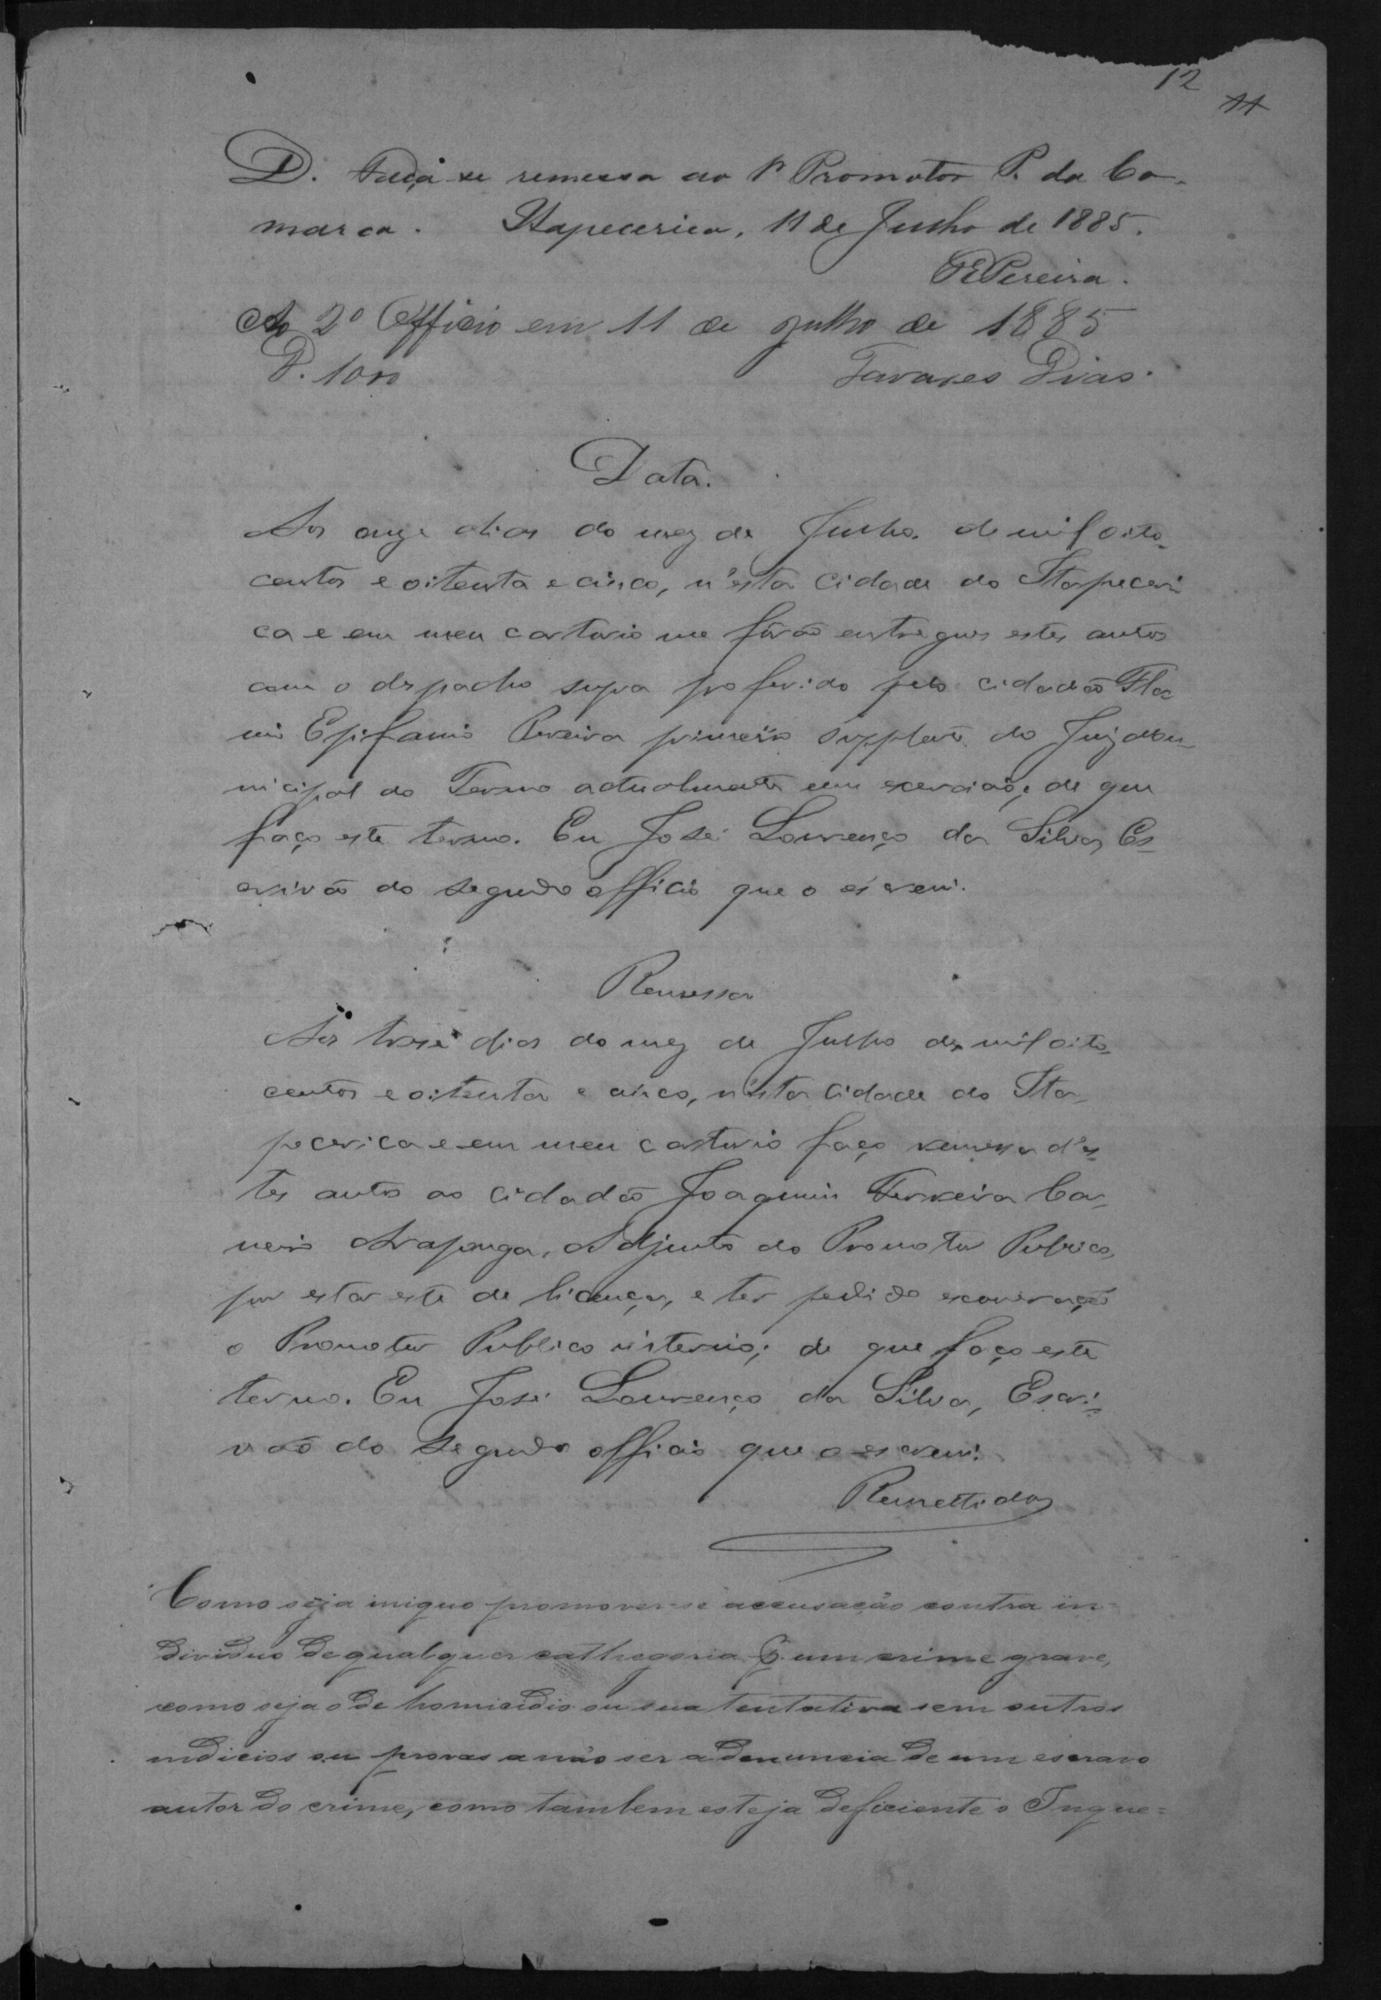 12
11
D. Faça-se remessa ao Promotor P. da Co-
marca. Itapecerica, 11 de Julho de 1885.
Pereira.
Ao 2º Officio em 11 de Julho de 1885
D. 1000 Tavares Dias.
Data.
Aos onze dias do mez de Julho de mil oito-
centos e oitenta e cinco, n'esta cidade do Itapeceri
ca e em meu cartorio me fôrão entregues estes autos
com o despacho supra proferido pelo cidadão Flo
Epifanio Pereira primeiro supplente do Juiz Mu-
nicipal do Termo actualmente em exercicio; de que
faço este termo. Eu José Lourenço da Silva, Es-
crivão do segundo officio que o escrevi.
Remessa
Aos trese dias do mez de Julho de mil oito-
centos e oitenta e cinco, n'esta cidade do Ita-
pecerica e em meu cartorio faço remessa d'es-
tes autos ao cidadão Joaquim Ferreira Car-
neiro Araponga, Adjunto do Promotor Publico,
por estar este de licença, e ter pedido exoneração
o Promotor Publico interino; de que faço este
termo. Eu José Lourenço da Silva, Escri-
vão do segundo officio que o escrevi.
Remettidos
Como seja iniquo promover-se accusação contra in-
dividuo de qualquer cathegoria p. um crime grave,
como seja o de homicidio ou sua tentativa sem outros
indicios ou provas a não ser a denuncia de um escravo
autor do crime, como tambem esteja deficiente o Inque=